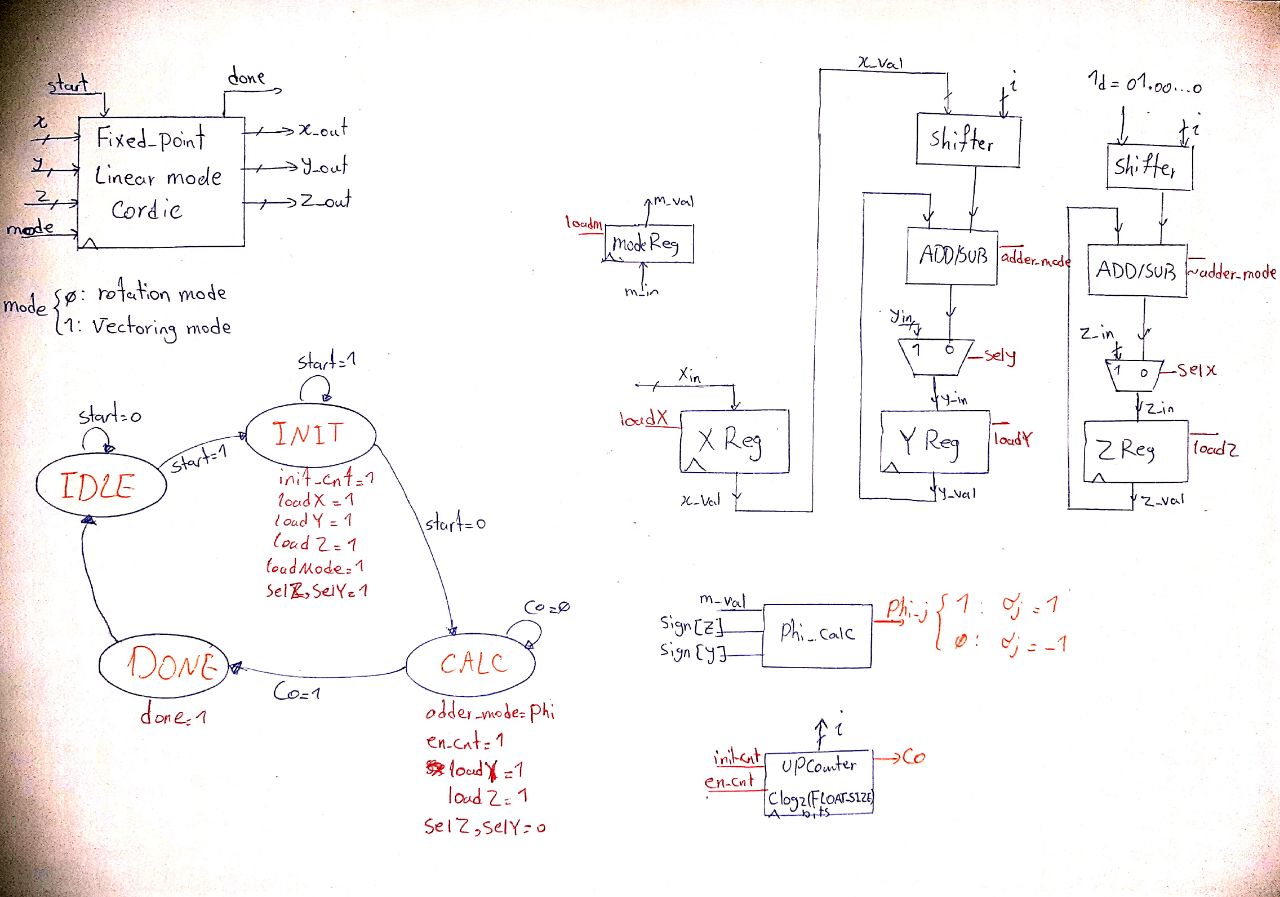 start
done
x
y
z
mode
Fixed_point
Linear mode
Cordic
x_out
y_out
z_out
mode { 0: rotation mode
1: Vectoring mode
start=0
IDLE
start=1
start=1
INIT
init_cnt=1
loadX=1
loadY=1
loadZ=1
loadMode=1
selZ, selY=1
start=0
Co=0
CALC
adder_mode=phi
en_cnt=1
loadY=1
loadZ=1
selZ, selY=0
Co=1
DONE
done=1
m_val
loadm
modeReg
m_in
x_val
i
shifter
ADD/SUB
adder_mode
yin
1 0
sely
y_in
Y Reg
loadY
y_val
Xin
loadX
X Reg
x_val
1d = 01.00...0
i
shifter
ADD/SUB
~adder_mode
z_in
1 0
selx
z_in
Z Reg
loadZ
z_val
m_val
Sign[z]
Sign[y]
phi_calc
phi_j { 1: σj = 1
0: σj = -1
i
init_cnt
en_cnt
UPCounter
Clog2(FLOAT_SIZE)
bits
Co